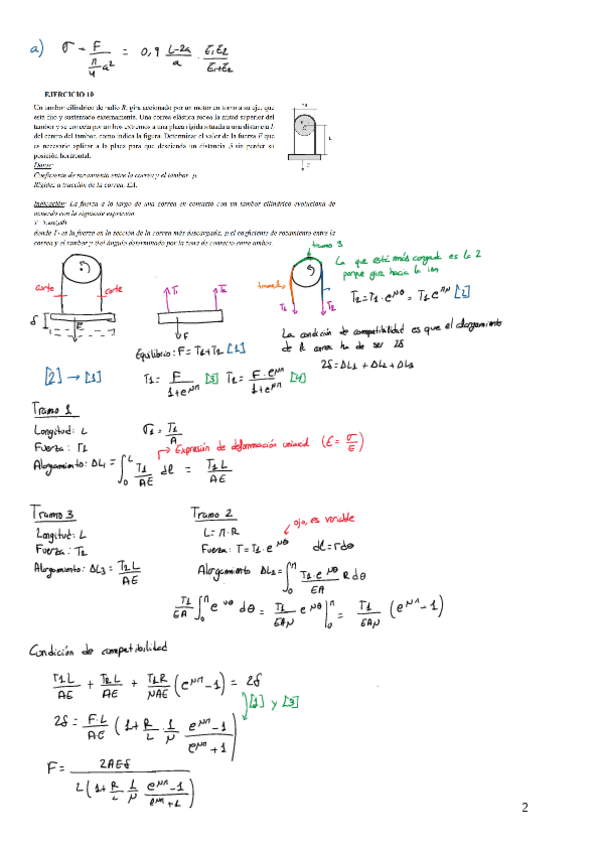 a) σ = F / (π/4 a²) = 0,9 (L-2a)/a · E₁E₂/(E₁+E₂)
EJERCICIO 10
Un tambor cilíndrico de radio R, gira accionado por un motor en torno a su eje, que
está fijo y sustentado externamente. Una correa elástica rodea la mitad superior del
tambor y se conecta por ambos extremos a una placa rígida situada a una distancia L
del centro del tambor, como indica la figura. Determinar el valor de la fuerza F que
es necesario aplicar a la placa para que descienda un distancia δ sin perder su
posición horizontal.
Datos:
Coeficiente de rozamiento entre la correa y el tambor: μ.
Rigidez a tracción de la correa: EA.
Indicación: La fuerza a lo largo de una correa en contacto con un tambor cilíndrico evoluciona de
acuerdo con la siguiente expresión
donde T₁ es la fuerza en la sección de la correa más descargada, μ el coeficiente de rozamiento entre la
correa y el tambor y θ el ángulo determinado por la zona de contacto entre ambos.
tramo 3
La que está más cargada es la 2
porque gira hacia la izq
corte
corte
T₁
T₂
T₂ = T₁·e^μθ = T₁e^μπ [2]
δ
F
F
T₁
T₂
La condición de compatibilidad es que el alargamiento
de la correa ha de ser 2δ
Equilibrio: F = T₁+T₂ [1]
2δ = ΔL₁ + ΔL₂ + ΔL₃
[2] → [1]
T₁ = F / (1+e^μπ) [3] T₂ = F·e^μπ / (1+e^μπ) [4]
Tramo 1
Longitud: L
σ₁ = T₁/A
Fuerza: T₁
Expresión de deformación unitaria (ε = σ/E)
Alargamiento: ΔL₁ = ∫₀ᴸ T₁/AE dl = T₁L/AE
Tramo 3
Tramo 2
Longitud: L
L = π·R
ojo, es variable
Fuerza: T₂
Fuerza: T = T₁·e^μθ
dl = rdθ
Alargamiento: ΔL₃ = T₂L/AE
Alargamiento ΔL₂ = ∫₀^π T₁e^μθ/EA Rdθ
T₁/EA ∫₀^π e^μθ dθ = T₁/EAμ e^μθ |₀^π = T₁/EAμ (e^μπ-1)
Condición de compatibilidad
T₁L/AE + T₂L/AE + T₁R/μAE (e^μπ-1) = 2δ
[1] y [3]
2δ = F·L/AE (1+ R/L · 1/μ · (e^μπ-1)/(e^μπ+1))
F = 2AEδ / (L(1+ R/L · 1/μ · (e^μπ-1)/(e^μπ+1)))
2